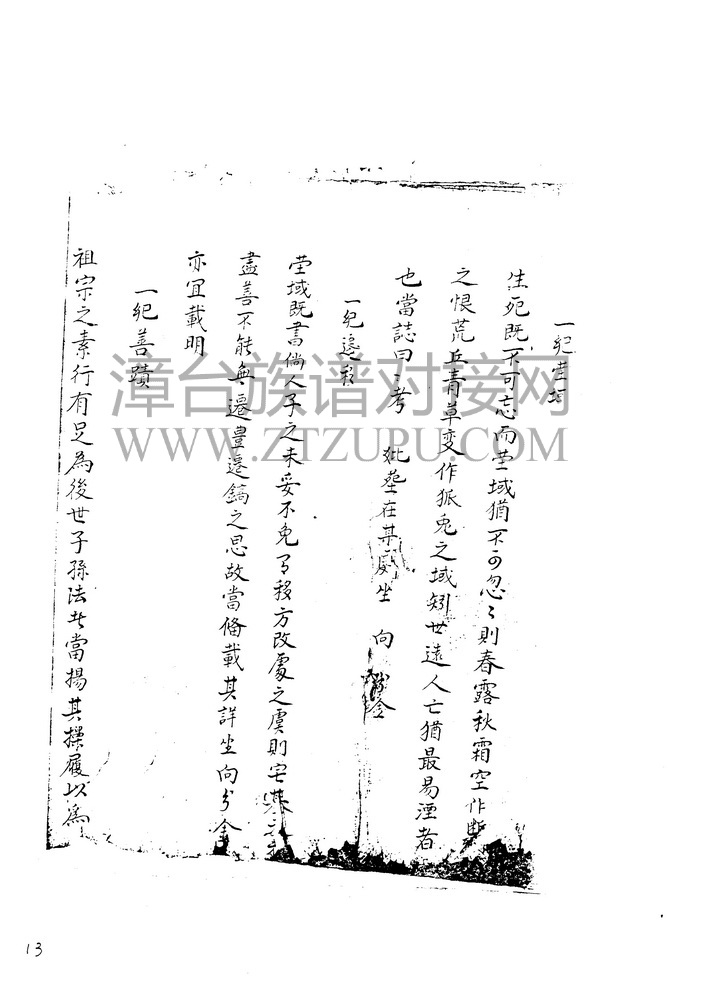 一紀塋
生死既不可忘而塋域猶不可忽〻則春露秋霜空作
之恨荒丘青草変作狐兎之域矧世遠人亡猶最易湮者
也當誌曰〻考 妣塟在某處坐 向 分金
一紀遷移
塋域既書倘人子之未妥不免有移方改處之虞則宅
盡善不能無遷豊遷鎬之思故當俻載其詳坐向分金
亦宜載明
一紀善蹟
祖宗之素行有足為後世子孫法者當揚其操履以為
漳台族谱对接网
WWW.ZTZUPU.COM
13